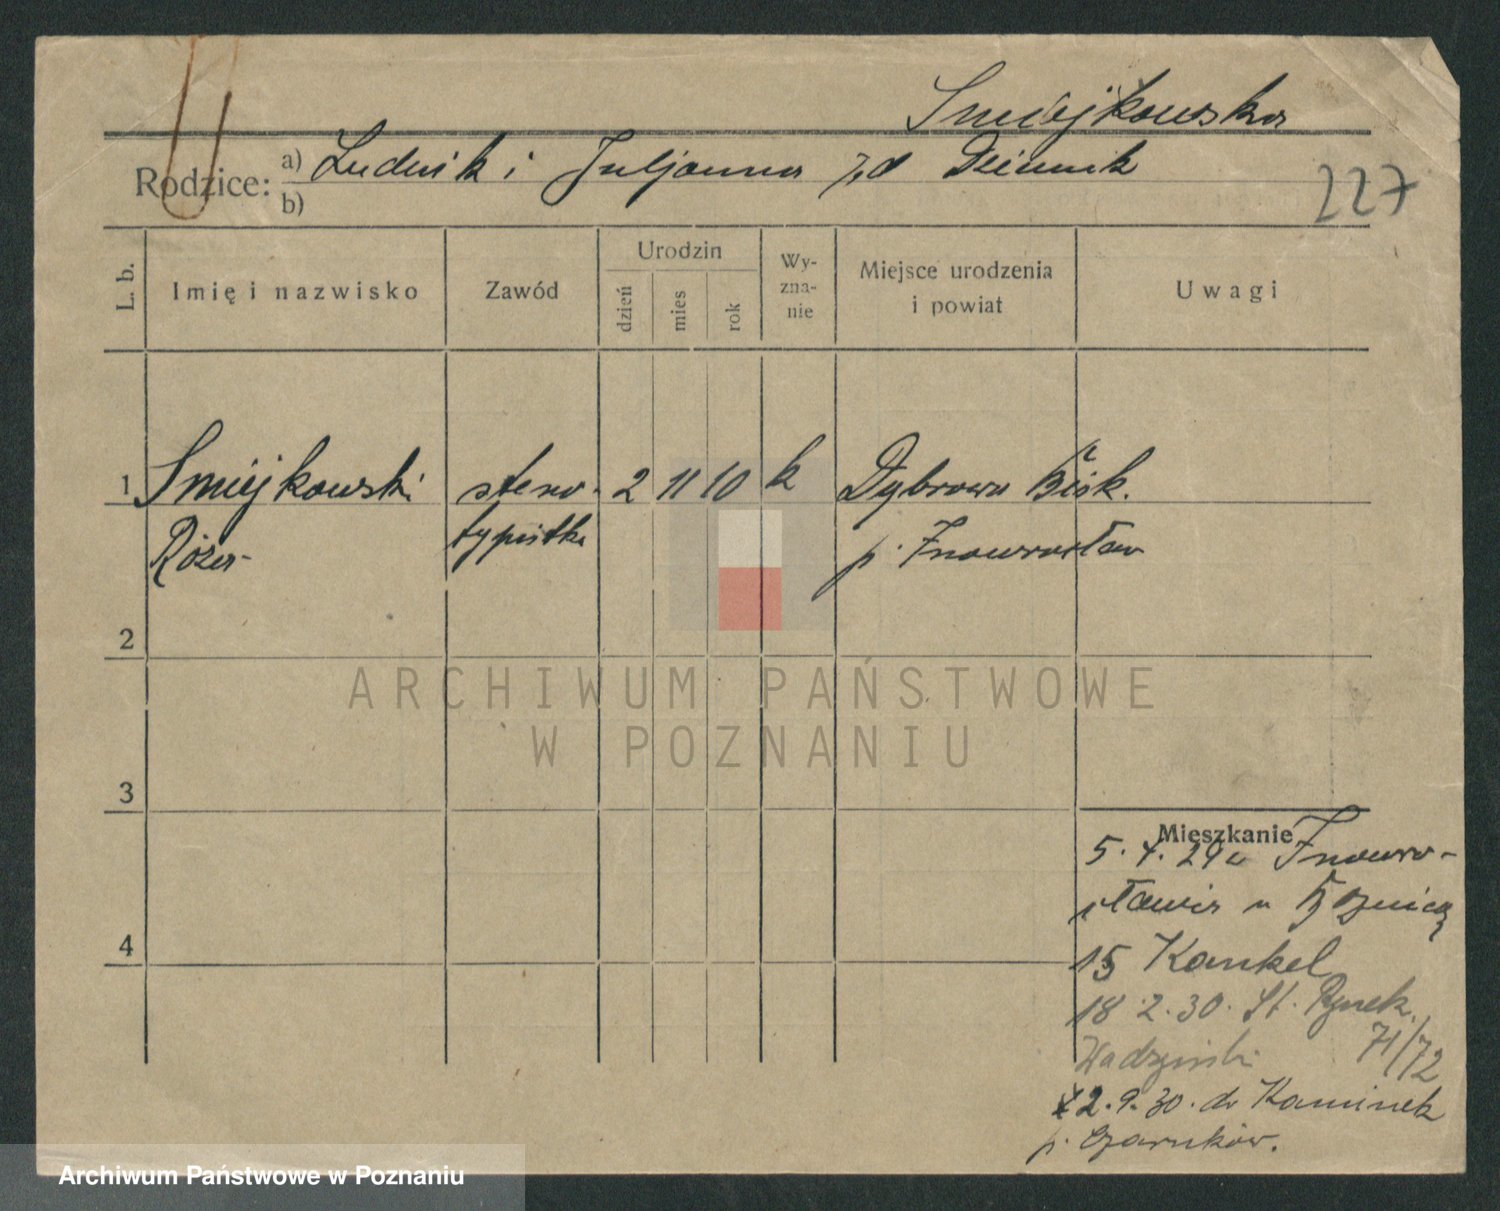 Śmiejkowska
Rodzice: a) Ludwik i Juljanna z d Dziennik
b)
227
L. b. Imię i nazwisko Zawód Urodzin dzień mies rok Wy-zna-nie Miejsce urodzenia i powiat Uwagi
1 Śmiejkowski steno- 2 11 10 k Dąbrowa Bisk.
Róża typistka p. Inowrocław
2
3
4
Mieszkanie
5. 4. 29 Inowro-
cławia
15 Kankel
18.2.30. St. Rynek
71/72
Wadzyński
2.9.30. do Kaminek
p. Czarnków.
ARCHIWUM PAŃSTWOWE
W POZNANIU
Archiwum Państwowe w Poznaniu